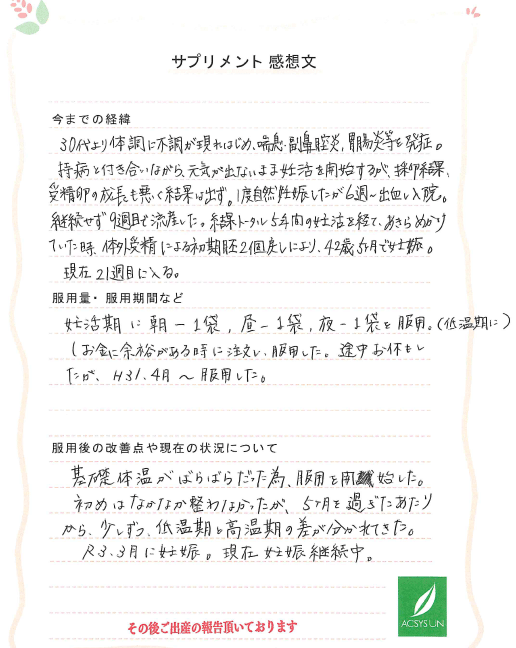 サプリメント 感想文
今までの経緯
30代より体調に不調が現れはじめ、喘息・副鼻腔炎、胃腸炎等を発症。
持病と付き合いながら、元気が出ないまま妊活を開始するが、採卵結果、
受精卵の成長も悪く結果は出ず。1度自然妊娠したが6週〜出血し入院。
継続せず9週目で流産した。結果トータル5年間の妊活を経て、あきらめかけ
ていた時、体外受精による初期胚2個戻しにより、42歳5ヵ月で妊娠。
現在21週目に入る。
服用量・服用期間など
妊活期に朝－1袋，昼－1袋，夜－1袋を服用。(低温期に)
(お金に余裕がある時に注文し、服用した。途中お休もし
たが、H31.4月〜服用した。
服用後の改善点や現在の状況について
基礎体温がばらばらだった為、服用を開始した。
初めはなかなか整わなかったが、5ヶ月を過ぎたあたり
から、少しずつ、低温期と高温期の差が分かれてきた。
R3.3月に妊娠。現在妊娠継続中。
その後ご出産の報告頂いております
ACSYSUN